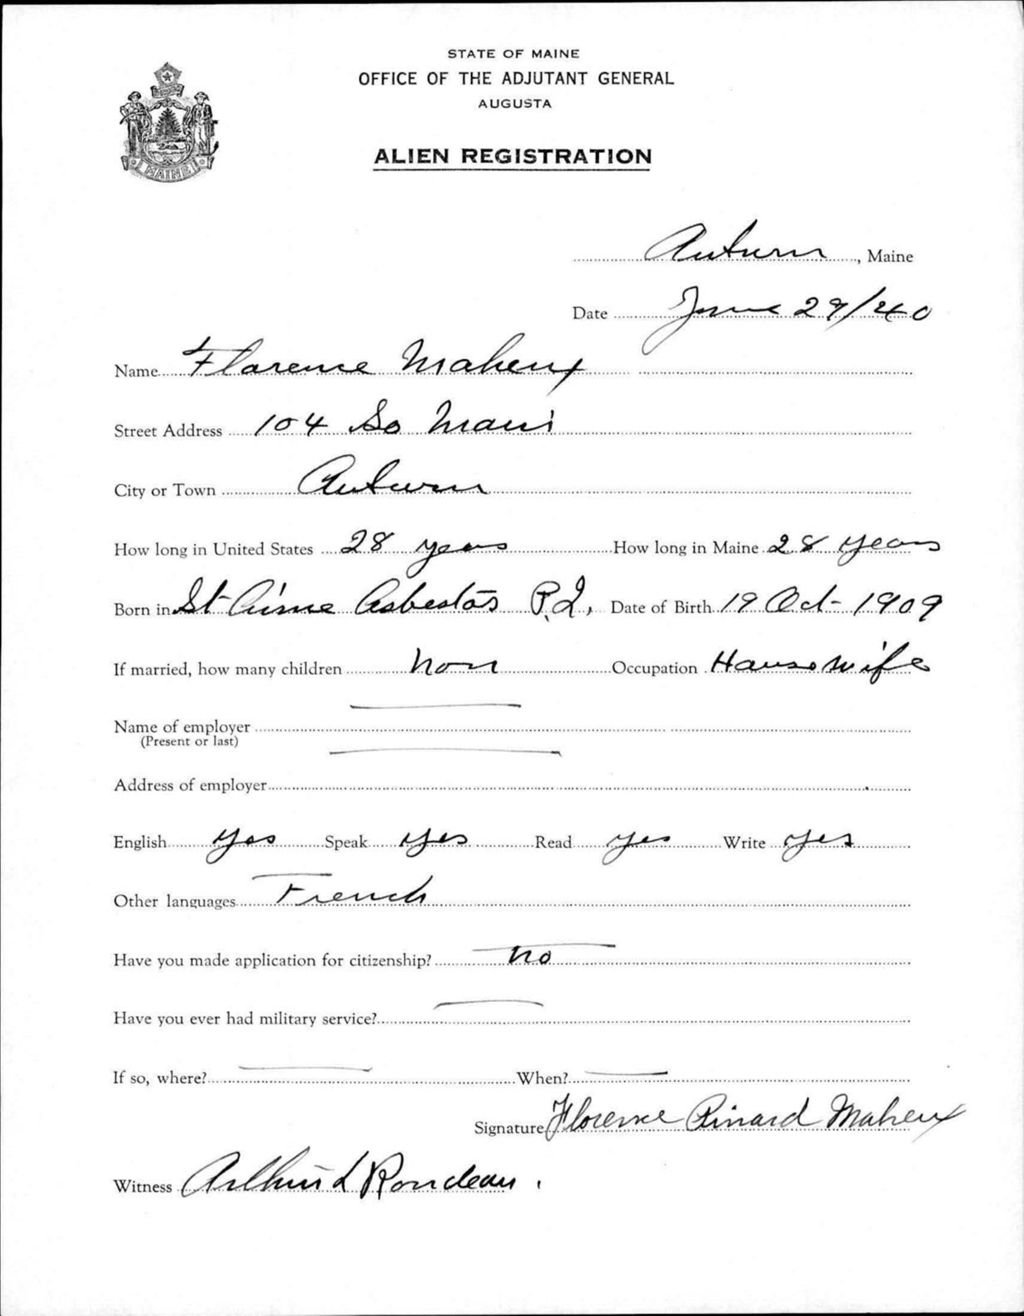 STATE OF MAINE
OFFICE OF THE ADJUTANT GENERAL
AUGUSTA
ALIEN REGISTRATION
MAINE
Auburn, Maine
Date June 29/40
Name Florence Maheux
Street Address 104 So Main
City or Town Auburn
How long in United States 28 years How long in Maine 28 years
Born in St Aime Asbestos P.Q, Date of Birth 19 Oct - 1909
If married, how many children non Occupation Housewife
Name of employer
(Present or last)
Address of employer
English yes Speak yes Read yes Write yes
Other languages French
Have you made application for citizenship? no
Have you ever had military service?
If so, where? When?
Signature Florence Pinard Maheux
Witness Arthur L Rondeau.